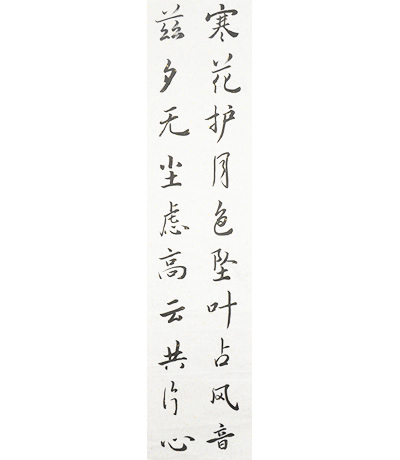 寒花护月色坠叶占风音
兹夕无尘虑高云共片心